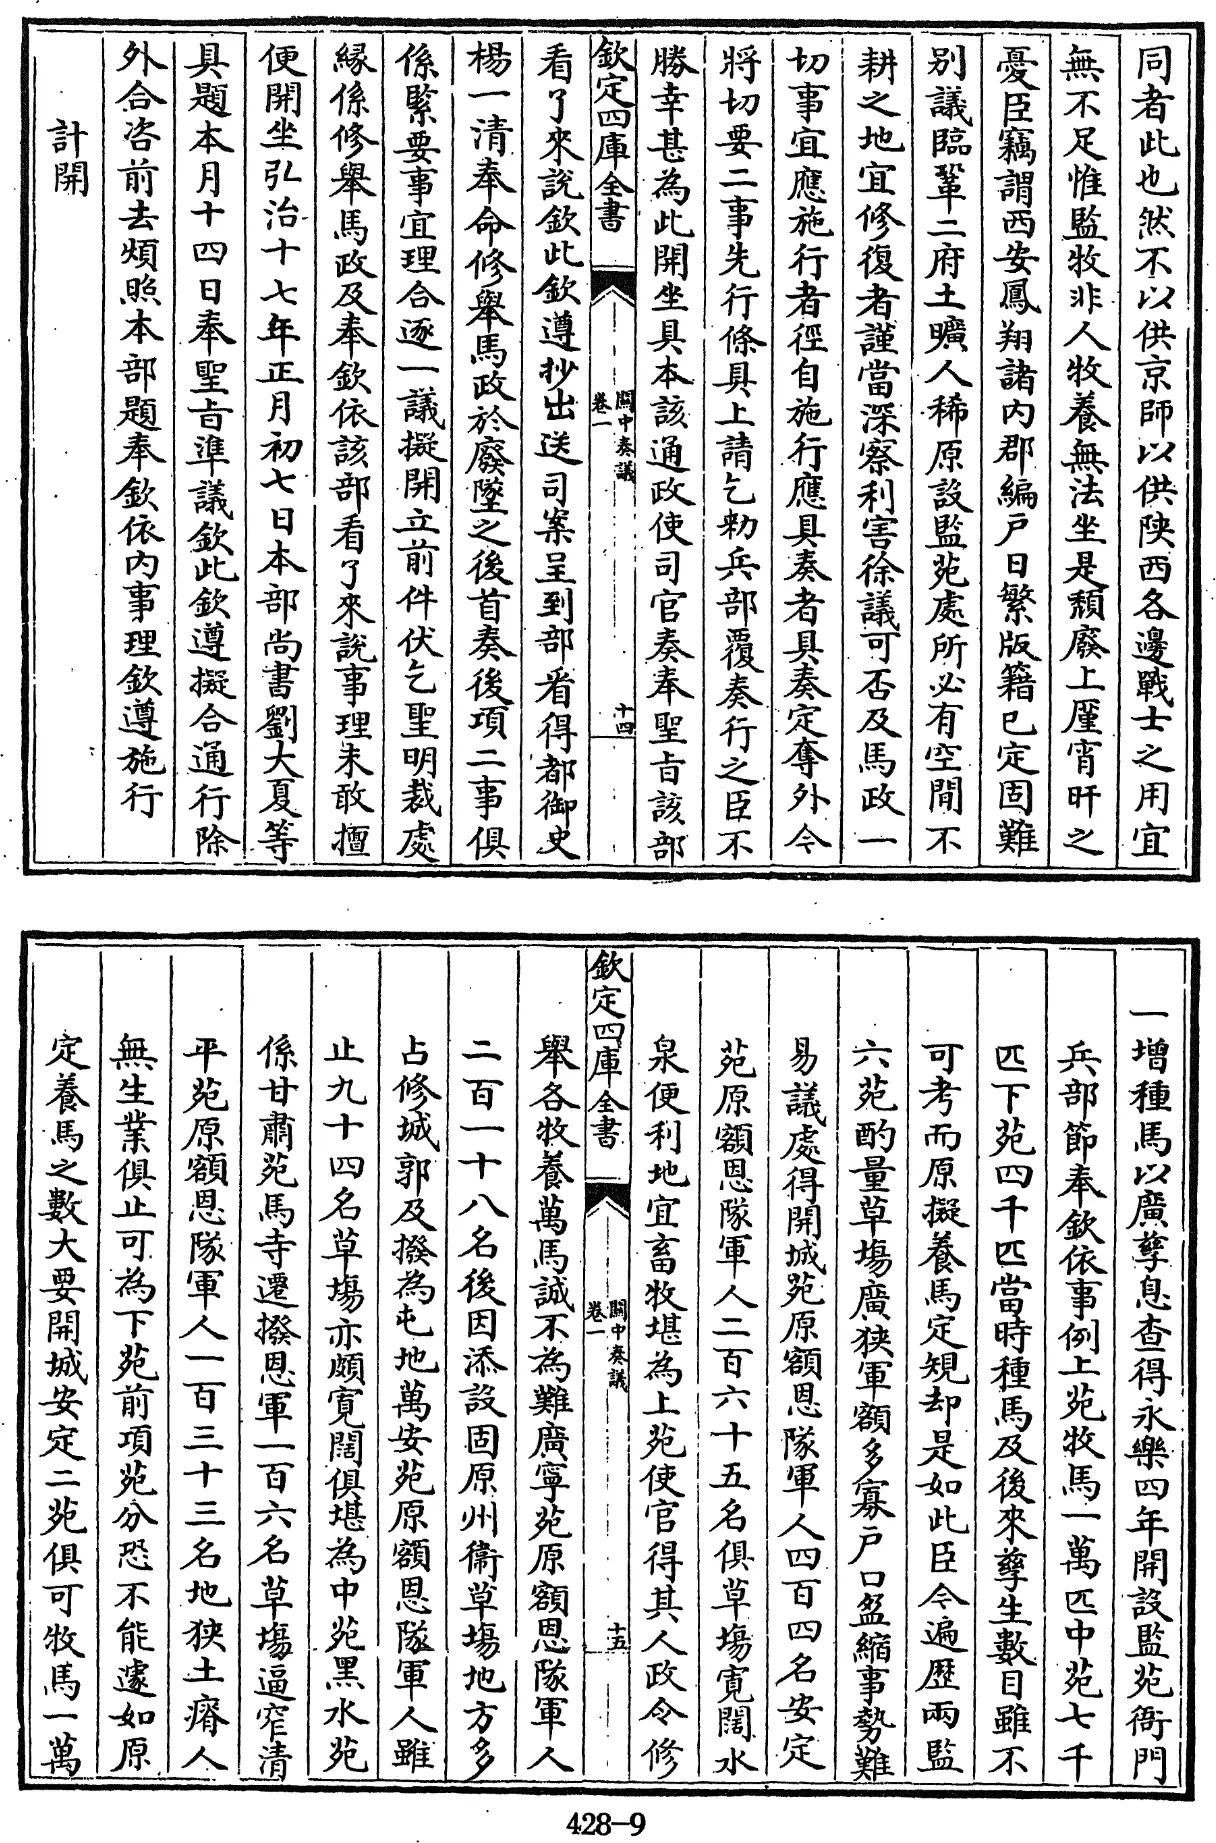 同者此也然不以供京師以供陝西各邊戰士之用宜
無不足惟監牧非人牧養無法坐是頽廢上厪宵旰之
憂臣竊謂西安鳳翔諸内郡編戸日繁版籍已定固難
别議臨鞏二府土曠人稀原設監苑處所必有空閒不
耕之地宜修復者謹當深察利害徐議可否及馬政一
切事宜應施行者徑自施行應具奏者具奏定奪外令
將切要二事先行條具上請乞勅兵部覆奏行之臣不
勝幸甚為此開坐具本該通政使司官奏奉聖㫖該部
欽定四庫全書
關中奏議
卷一
十四
看了來說欽此欽遵抄出送司案呈到部看得都御史
楊一清奉命修舉馬政於廢墜之後首奏後項二事俱
係緊要事宜理合逐一議擬開立前件伏乞聖明裁處
縁係修舉馬政及奉欽依該部看了來說事理未敢擅
便開坐弘治十七年正月初七日本部尚書劉大夏等
具題本月十四日奉聖㫖準議欽此欽遵擬合通行除
外合咨前去煩照本部題奉欽依内事理欽遵施行
計開
一増種馬以廣孳息查得永樂四年開設監苑衙門
兵部節奉欽依事例上苑牧馬一萬匹中苑七千
匹下苑四千匹當時種馬及後來孳生數目雖不
可考而原擬養馬定規却是如此臣令遍歴兩監
六苑酌量草場廣狹軍額多寡戸口盈縮事勢難
易議處得開城苑原額恩隊軍人四百四名安定
苑原額恩隊軍人二百六十五名俱草塲寛闊水
泉便利地宜畜牧堪為上苑使官得其人政令修
欽定四庫全書
關中奏議
卷一
十五
舉各牧養萬馬誠不為難廣寧苑原額恩隊軍人
二百一十八名後因添設固原州衞草塲地方多
占修城郭及撥為屯地萬安苑原額恩隊軍人雖
止九十四名草塲亦頗寛闊俱堪為中苑黑水苑
係甘肅苑馬寺遷撥恩軍一百六名草塲逼窄清
平苑原額恩隊軍人一百三十三名地狹土瘠人
無生業俱止可為下苑前項苑分恐不能遽如原
定養馬之數大要開城安定二苑俱可牧馬一萬
428-9